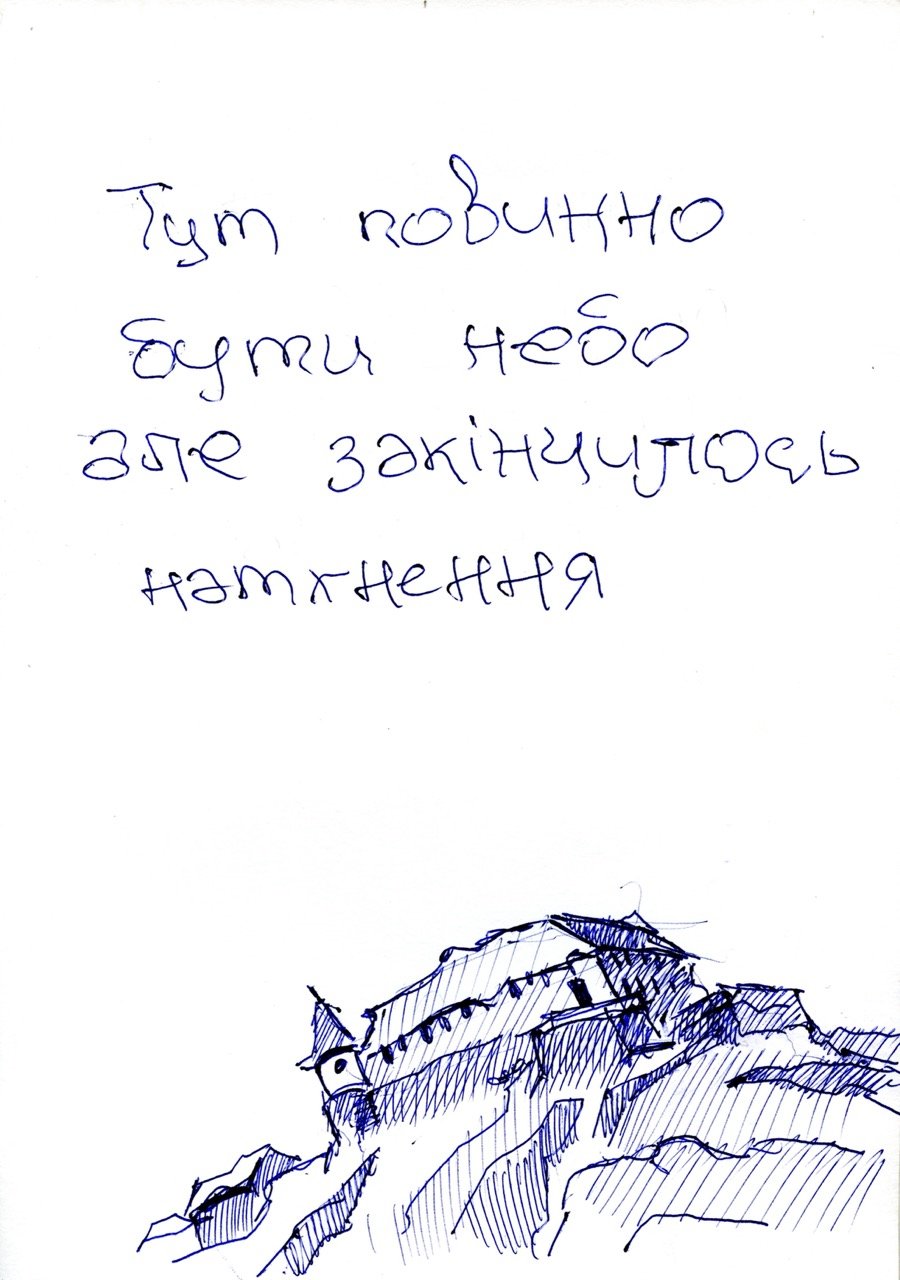 Тут повинно
бути небо
але закінчилось
натхнення